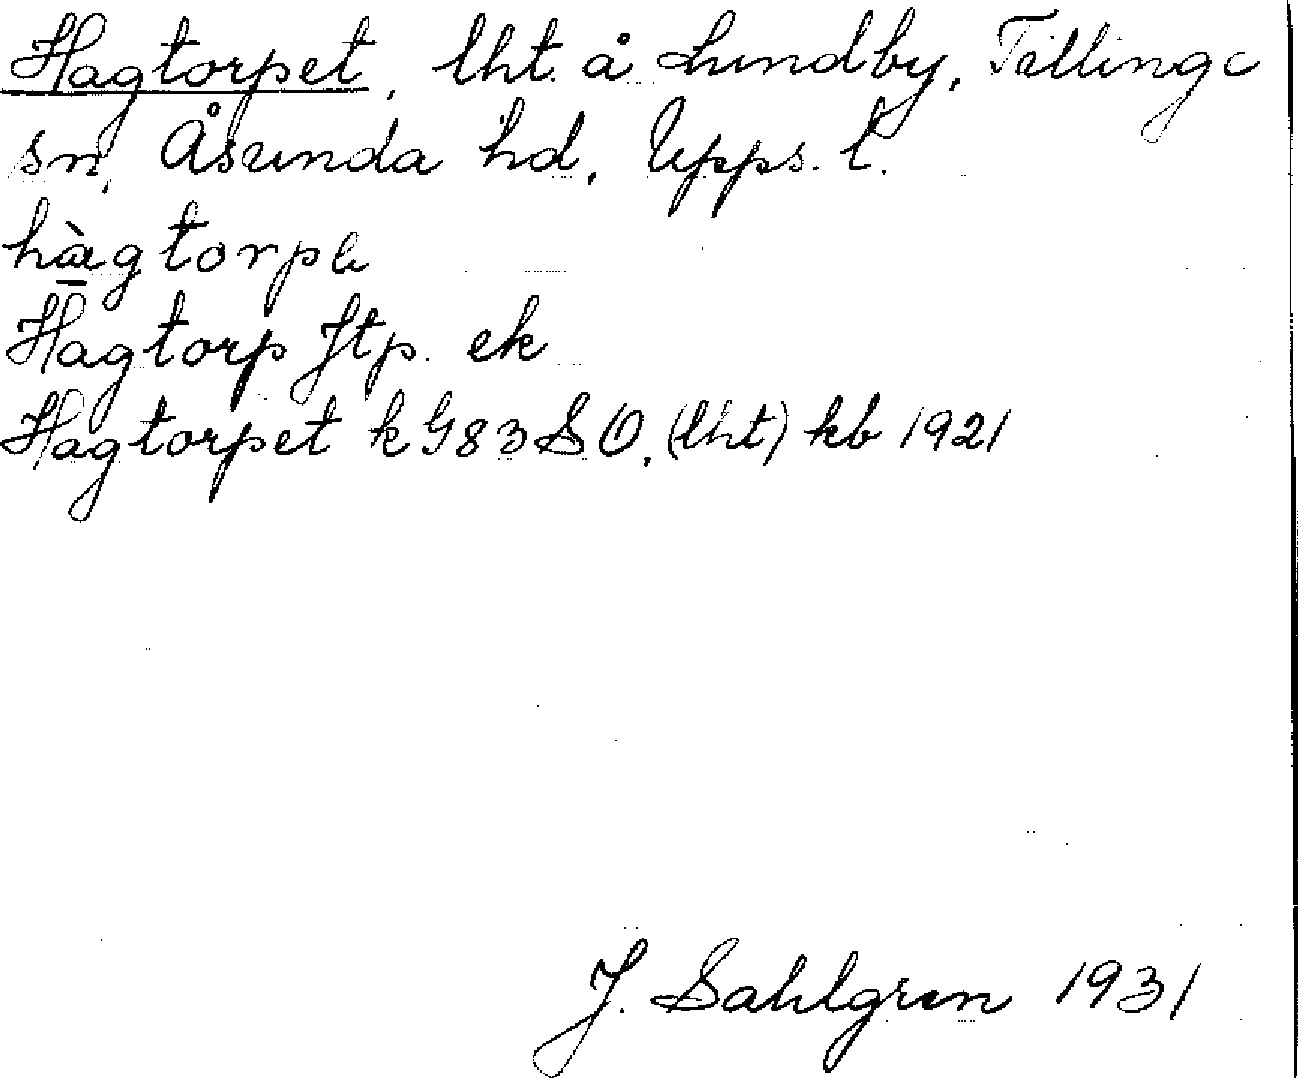 Hagtorpet, lht. å Lundby, Tillinge
sn, Åsunda hd, Upps. l.
hàgtorpe
Hagtorp ftp. ek
Hagtorpet k G 83 SO, (lht) kb 1921
J. Sahlgren 1931